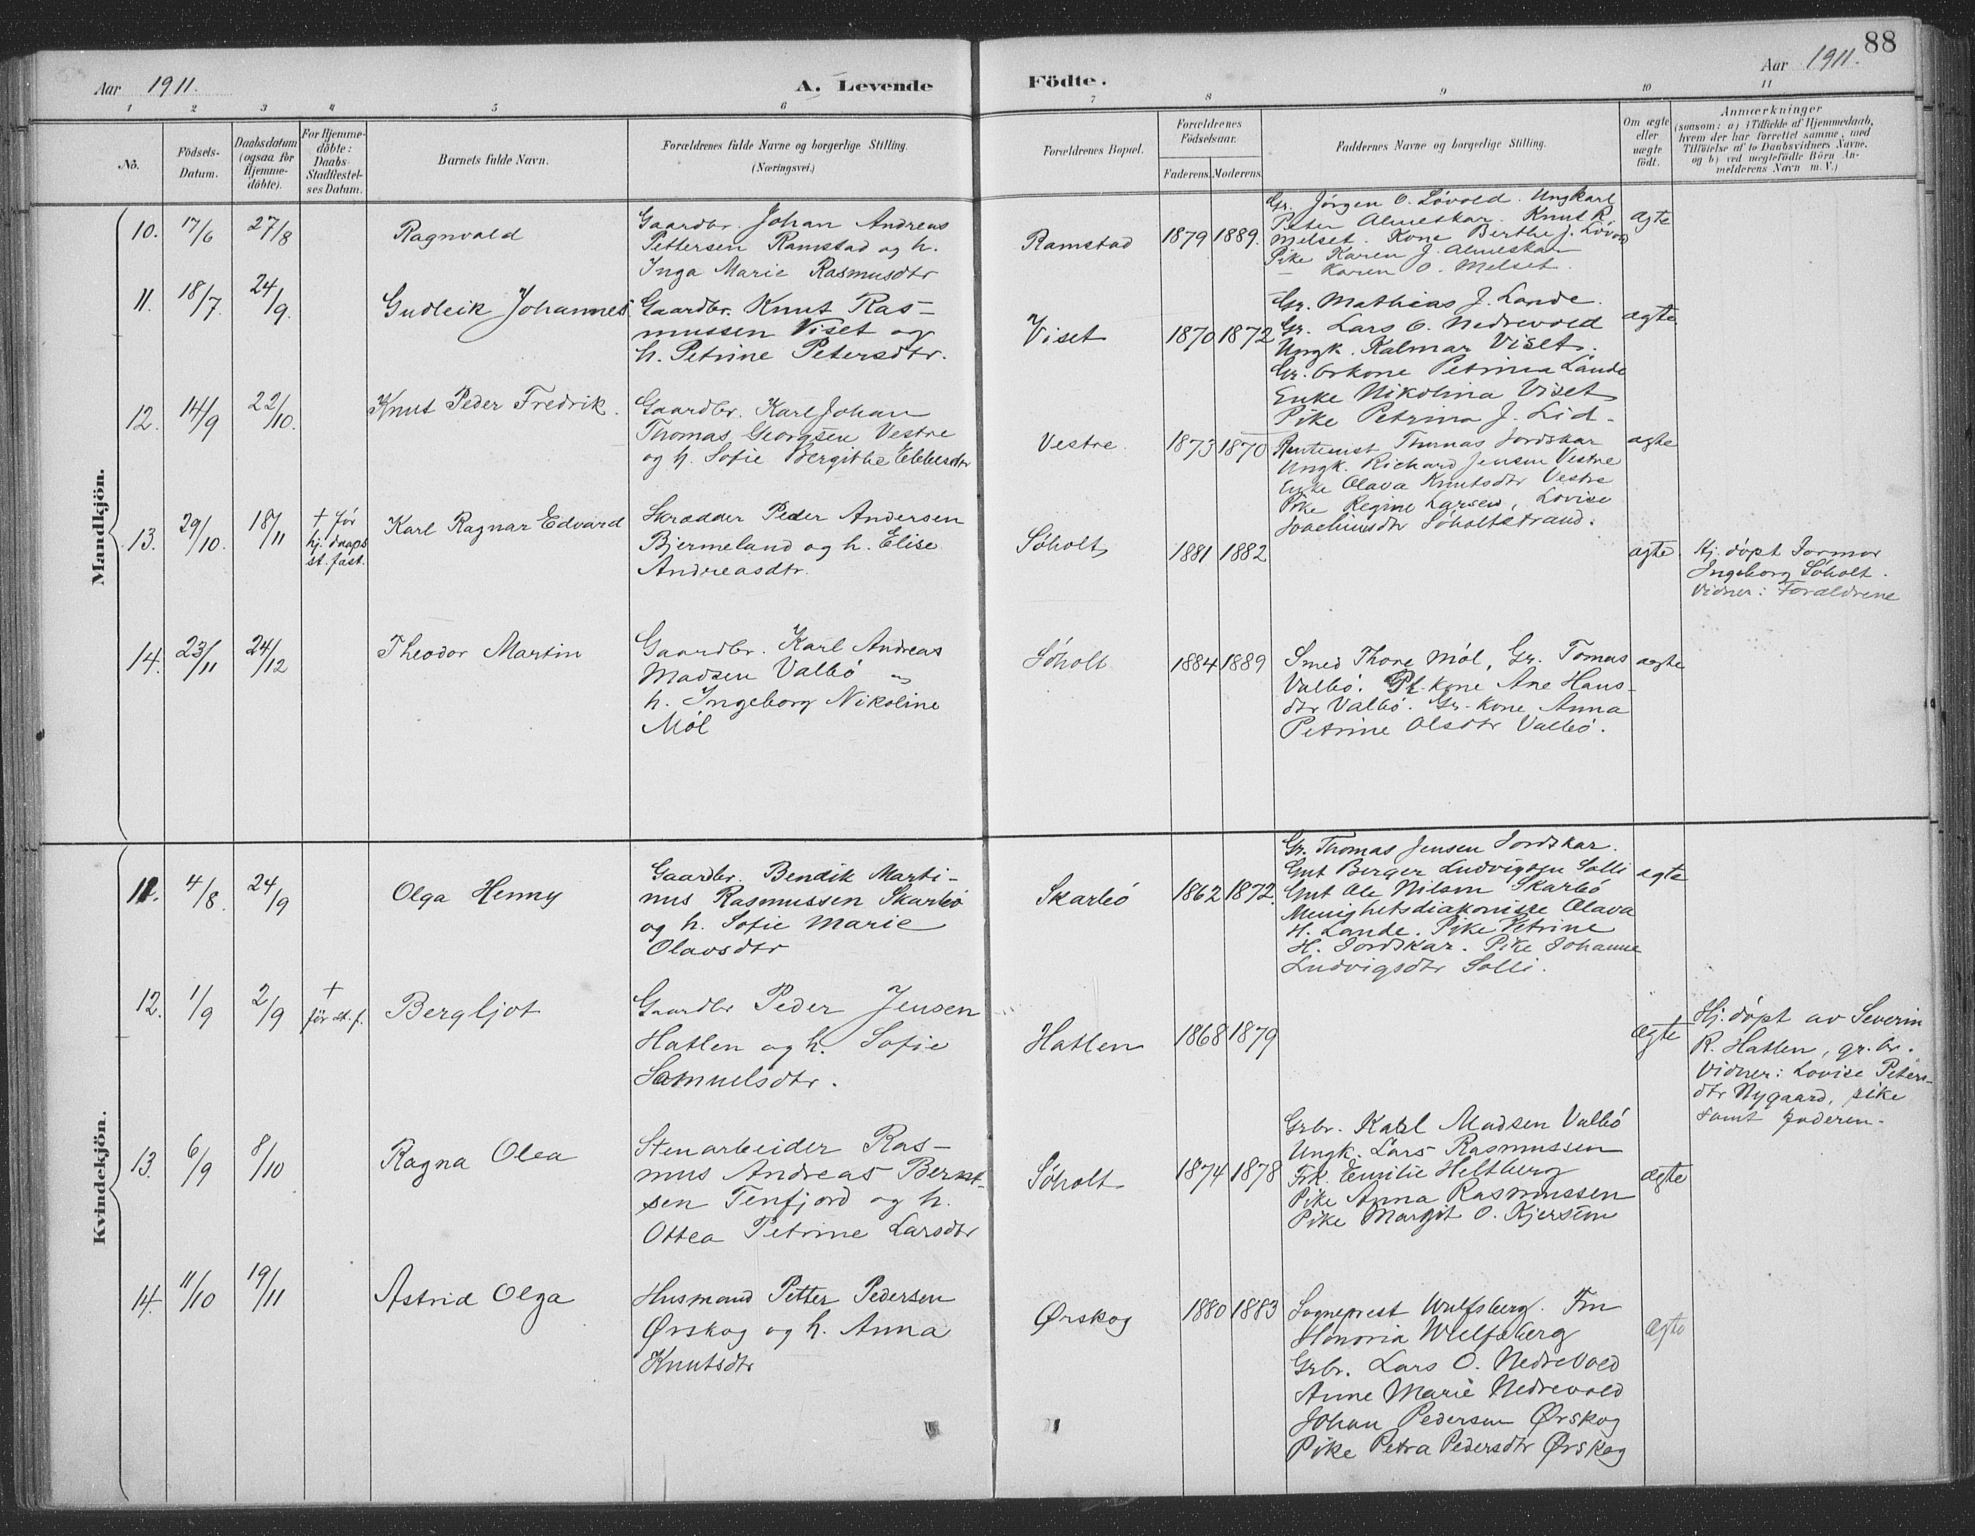 88
Aar 1911.
A. Levende Födte.
Aar 1911.
1 2 3 4 5 6 7 8 9 10 11
No.
Födsels-Datum.
Daabsdatum (ogsaa for Hjemme-döbte).
For Hjemme-döbte: Daabs Stadfæstel-ses Datum.
Barnets fulde Navn.
Forældrenes fulde Navne og borgerlige Stilling.
(Næringsvei.)
Forældrenes Bopæl.
Forældrenes Födselsaar.
Faderens. Moderens.
Faddernes Navne og borgerlige Stilling.
Om ægte eller uægte födt.
Anmærkninger
(saasom: a) i Tilfælde af Hjemmedaab, hvem der har forrettet samme, med Tilföielse af to Daabsvidners Navne, og b) ved uægtefödte Börn An-melderens Navn m. V.)
Mandkjön.
10. 17/6 27/8 Ragnvald
Gaardbr. Johan Andreas
Pettersen Ramstad og h.
Inga Marie Rasmusdtr
Ramstad 1879 1889.
Gr. Jörgen O. Lövold. Ungkarl
Peter Almeskar. Knut R.
Melset. Kone Berthe J. Lövold
Pike Karen J. Almeskar
— Karen O. Melset.
ægte
11. 18/7 24/9. Gudleik Johannes
Gaardbr. Knut Ras-
mussen Viset og
h. Petrine Petersdtr.
Viset 1870 1872
Gr. Mathias J. Lande.
Gr. Lars O. Nedrevold
Ungk. Kalmar Viset.
Gr. brkone Petrina Lande
Enke Nikolina Viset
Pike Petrina J. Lid.
ægte
12. 14/9 22/10. Knut Peder Fredrik.
Gaardbr. Karl Johan
Thomas Georgsen Vestre
og h. Sofie Bergithe Ebbesdtr
Vestre. 1873 1870
Rentenist Thomas Jordskar
Ungk. Richard Jensen Vestre
Enke Olava Knutsdtr Vestre
Pike Regine Larsen, Lovise
Joachimsdtr Søholtstrand.
ægte
13. 29/10. 18/11 † før
hj. daaps
st. fæst.
Karl Ragnar Edvard
Skrædder Peder Andersen
Bjermeland og h. Elise
Andreasdtr.
Søholt 1881 1882
ægte.
Hj. døpt Jormor
Ingeborg Søholt.
Vidner: Forældrene
14. 23/11 24/12 Theodor Martin
Gaardbr. Karl Andreas
Madsen Valbö og
h. Ingeborg Nikoline
Möl
Søholt 1884 1889
Smed Thore Möl, Gr. Tomas
Valbö. Pl. kone Ane Hans-
dtr Valbö. Gr. kone Anna
Petrine Olsdtr Valbö.
ægte
Kvindekjön.
11. 4/8. 24/9 Olga Henny
Gaardbr. Bendik Marti-
nus Rasmussen Skarbö
og h. Sofie Marie
Olavsdtr
Skarbö 1862 1872.
Gr. Thomas Jensen Jordskar.
Gut Berger Ludvigsen Solli
Gut Ole Nilsen Skarbö
Menighetsdiakonisse Olava
H. Lande. Pike Petrine
H. Jordskar. Pike Johanne
Ludvigsdtr Solli.
ægte
12. 1/9 2/9 †
før st. f.
Bergljot
Gaardbr Peder Jensen
Hatlen og h. Sofie
Samuelsdtr.
Hatlen 1868 1879
ægte
Hj. døpt av Severin
R. Hatlen, gr. br.
Vidner: Lovise Peters-
dtr Nygaard, pike
samt faderen.
13. 6/9 8/10 Ragna Olea
Stenarbeider Ras-
mus Andreas Bernt-
sen Tenfjord og h.
Ottea Petrine Larsdtr
Søholt 1874 1878
Grbr. Karl Madsen Valbö
Ungk. Lars Rasmussen
Frk. Emilie Heltberg
Pike Anna Rasmussen
Pike Margit O. Kjersem
ægte
14. 11/10 19/11 Astrid Olga
Husmand Petter Pedersen
Ørskog og h. Anna
Knutsdtr
Ørskog 1880 1883
Sogneprest Wulfsberg. Fru
Honoria Wulfsberg
Grbr. Lars O. Nedrevold
Anne Marie Nedrevold
Johan Pedersen Ørskog
Pike Petra Pedersdtr Ørskog
ægte